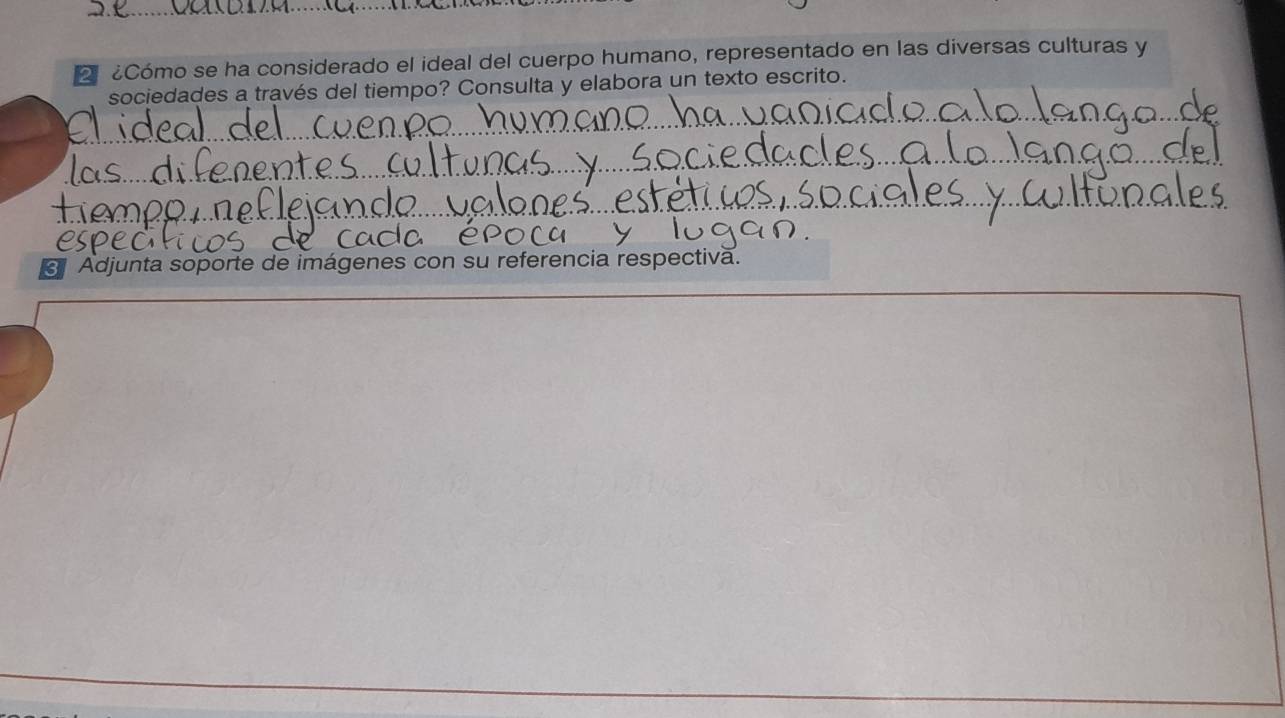 se
2 ¿Cómo se ha considerado el ideal del cuerpo humano, representado en las diversas culturas y
sociedades a través del tiempo? Consulta y elabora un texto escrito.
El ideal del cuenpo humano ha vaniado a lo lango de
las difenentes cultunas y sociedades a lo lango del
tiempo, neflejando valones estéticos, sociales y cultunales
especificos de cada época y lugan.
3 Adjunta soporte de imágenes con su referencia respectiva.